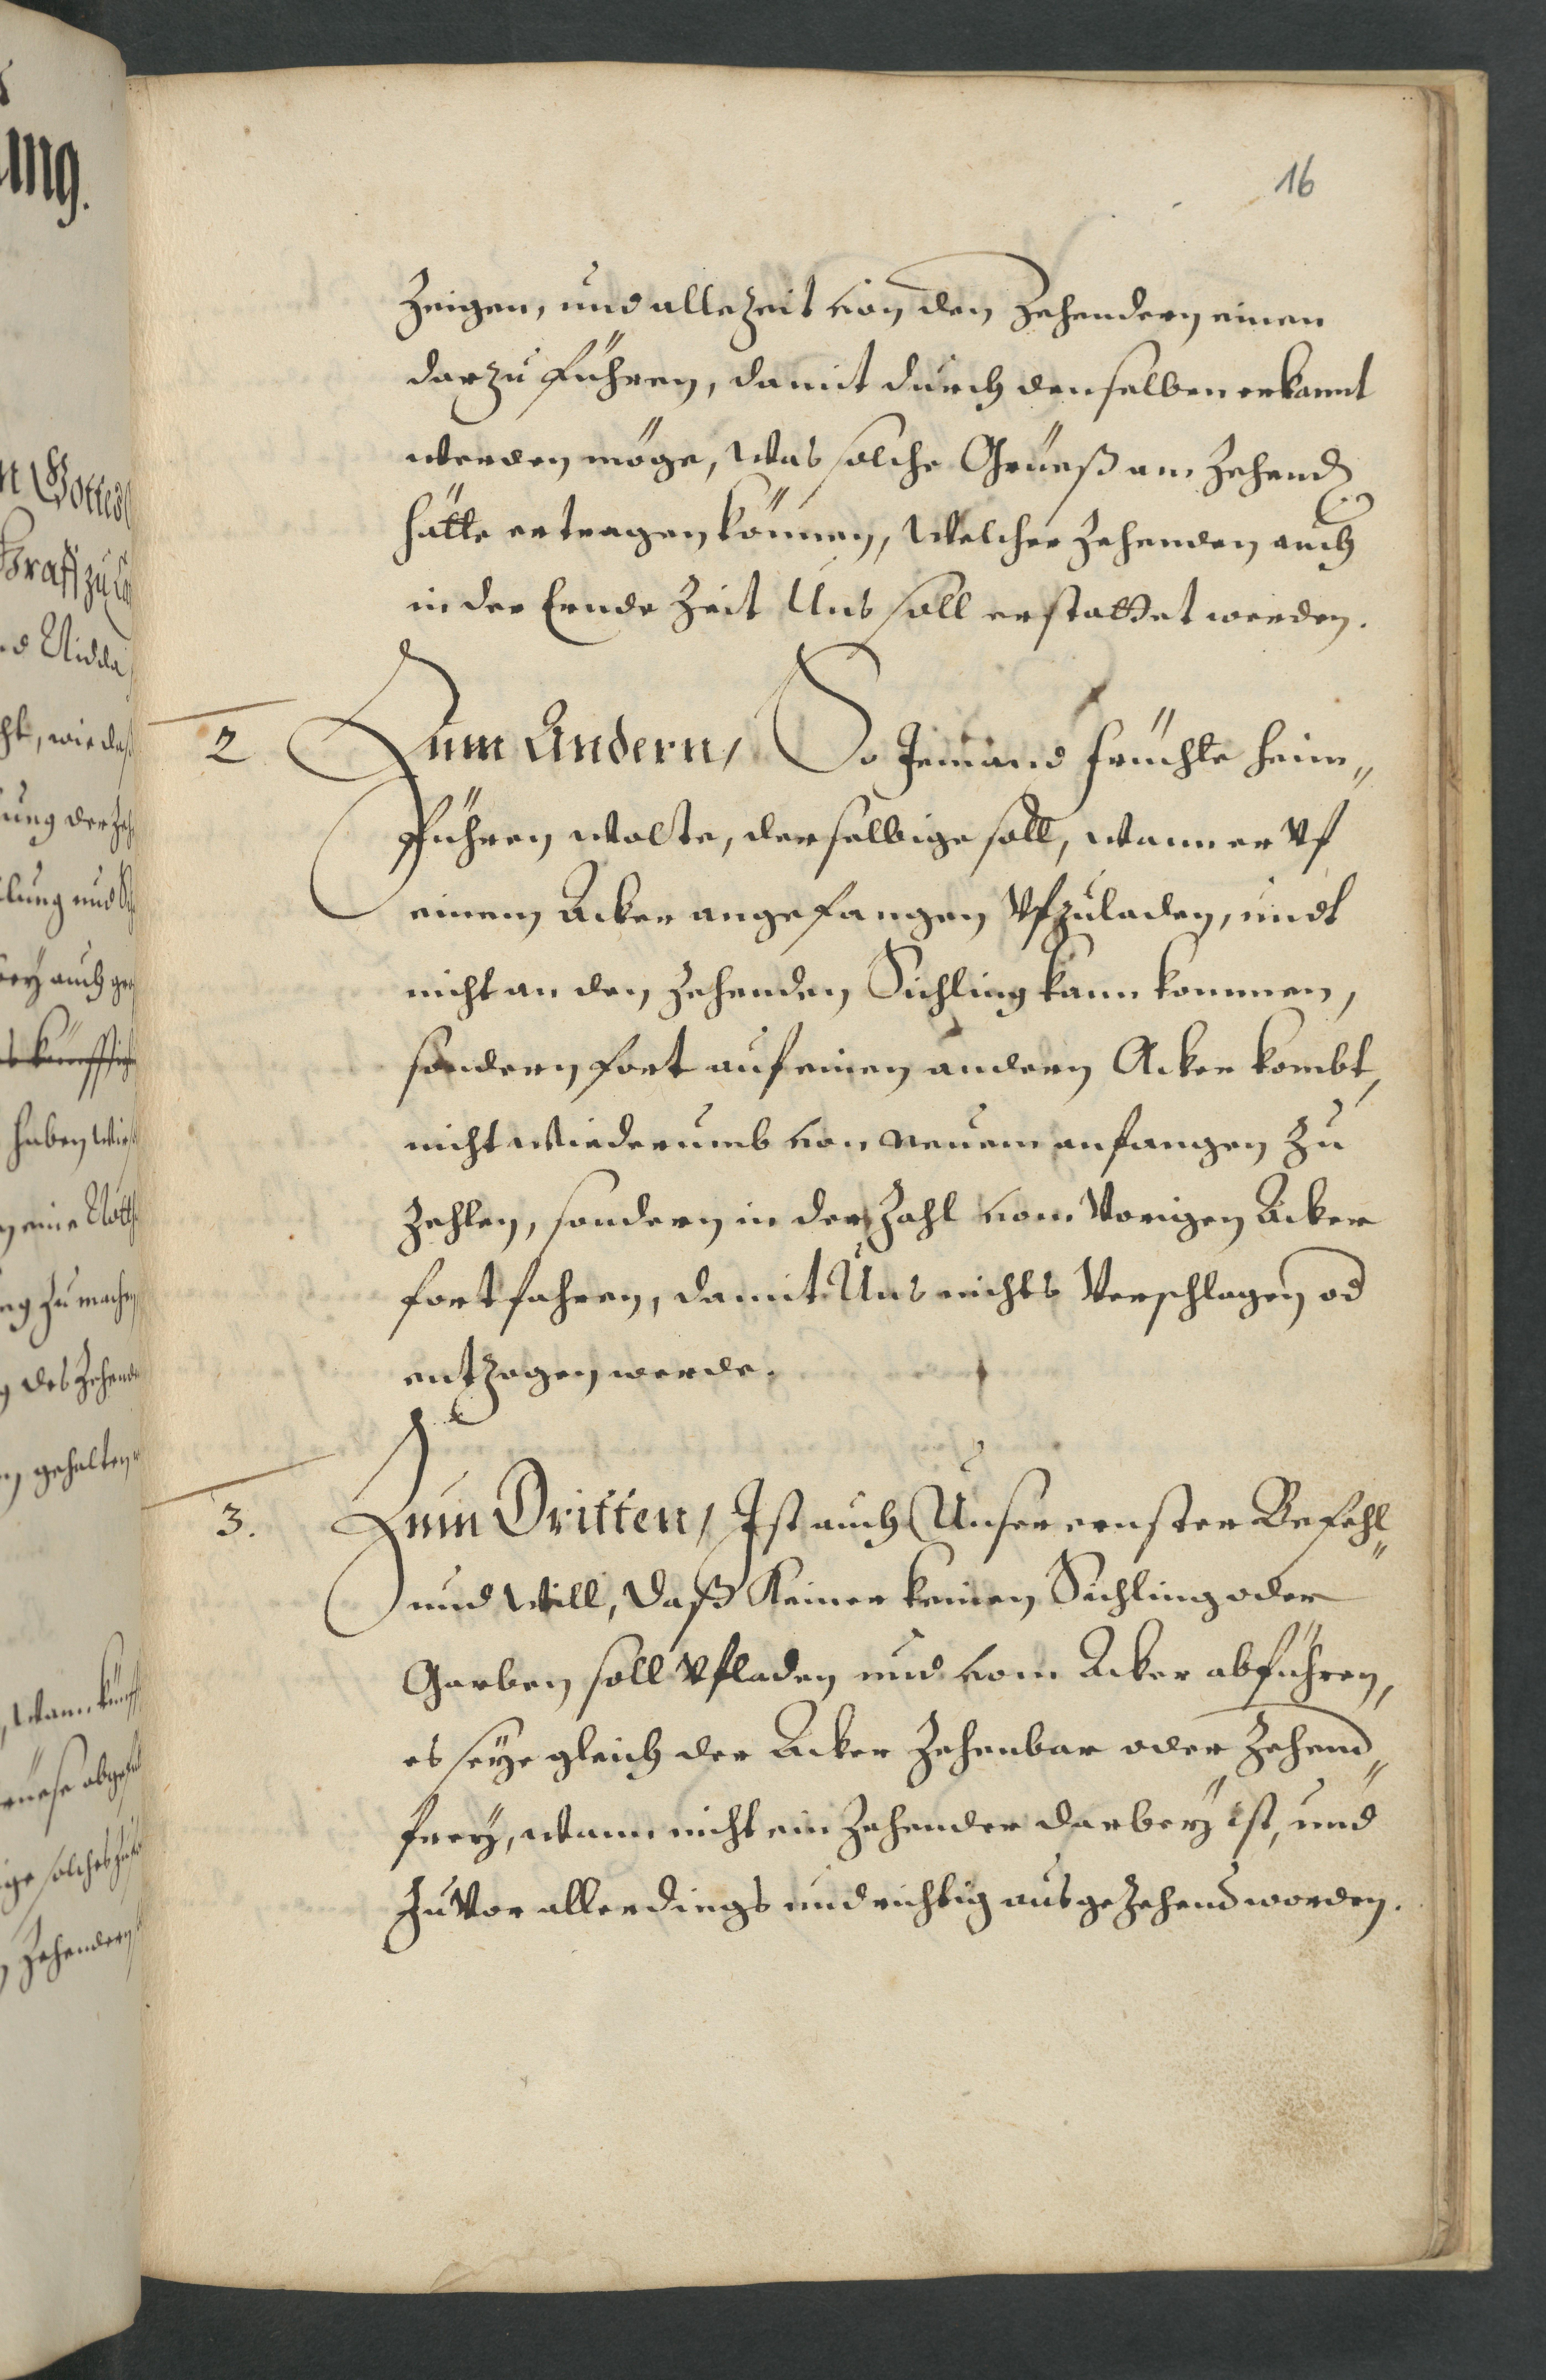 16
Zeigen, und allezeit von den Zehendern einen
darzu führen, damit durch denselben erkannt
werden möge, Was solche Grueß am Zehend
hätte ertragen können, Welcher Zehenden auch
in der Ernde Zeit Uns soll erstattet werden.
2 Zum Andern, So Jemand früchte heim„
führen wolte, derselbige soll, wann er vf
einem Acker angefangen vfzuladen, undt
nicht an den Zehenden Sichling kann kommen,
sondern fort auf einen andern Acker kombt,
nicht wiederumb von neuem anfangen zu
Zehlen, sondern in der Zahl vom Vorigen Acker
fortfahren, damit Uns nichts Verschlagen od
entzogen werde.
3. Zum Dritten, Ist auch Unser ernster Befehl„
und Will, daß Keiner keinen Sichling oder
Garben soll vfladen und vom Acker abführen,
es seye gleich der Acker Zehenbar oder Zehend„
frey, wann nicht ein Zehender darbey ist, und
zuvor allerdings und richtig ausgezehend worden.